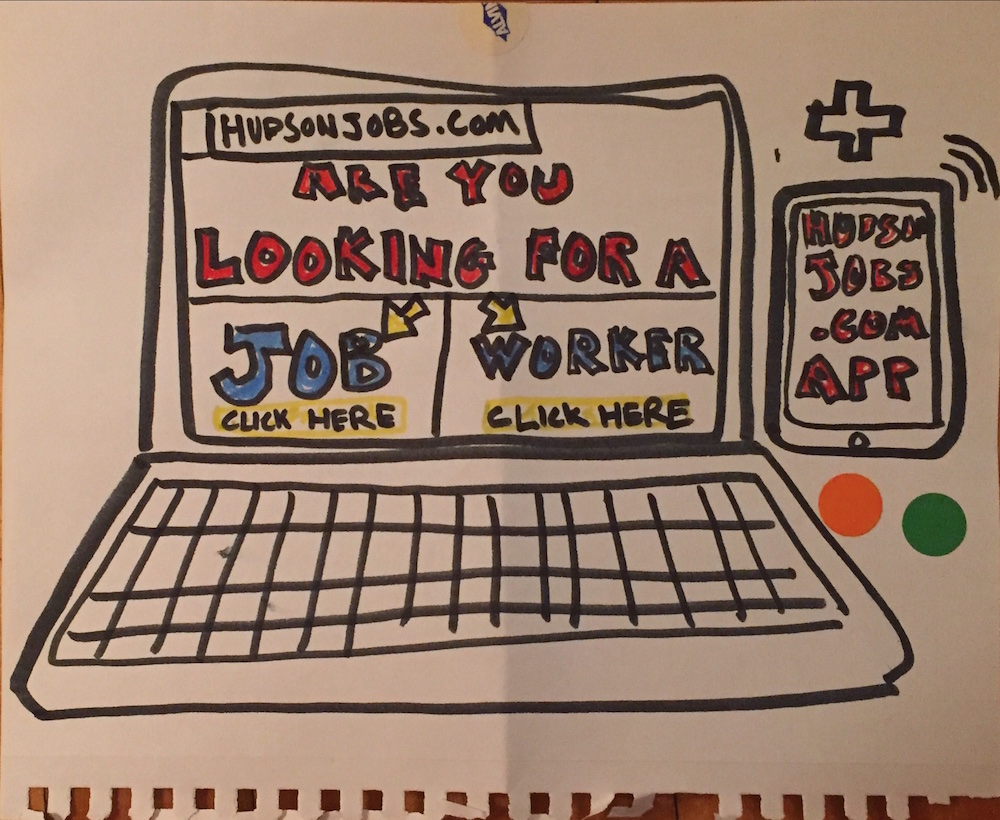 HUDSONJOBS.COM
ARE YOU
LOOKING FOR A
JOB
CLICK HERE
WORKER
CLICK HERE
HUDSON
JOBS
.COM
APP